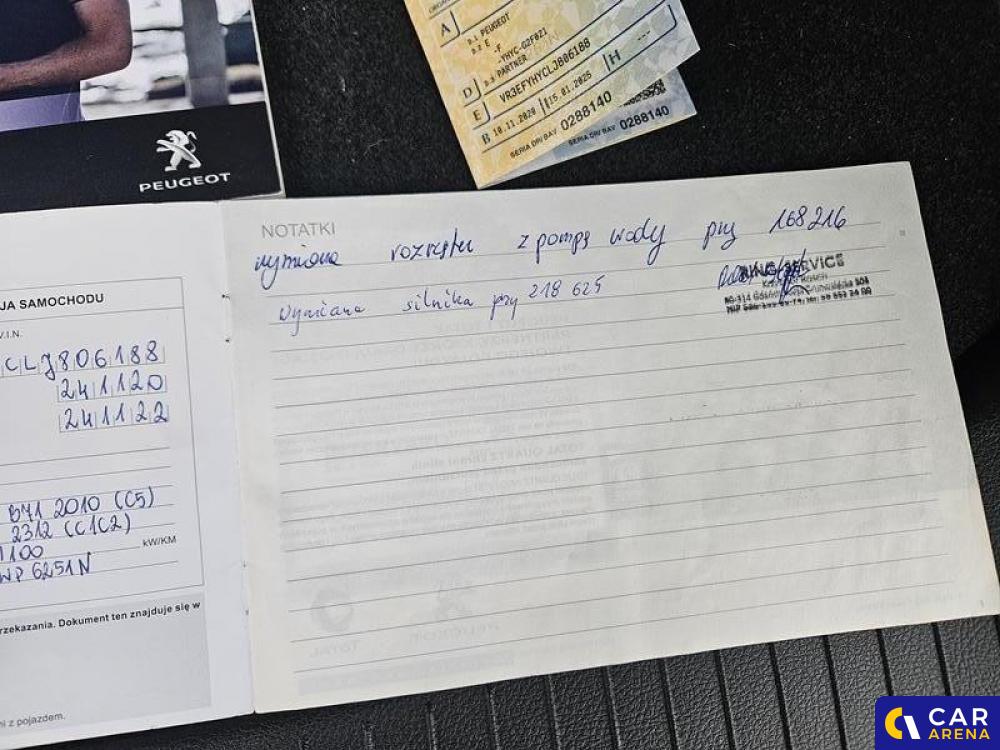 PEUGEOT
A
D.1 PEUGEOT
D.2 E
-F
-YHYC-G2F0Z1
D
D.3 PARTNER
E
VR3EFYHYCLJ806188
B 10.11.2020
I 15.01.2025
H ---
SERIA DR/BAV 0288140
SERIA DR/BAV 0288140
JA SAMOCHODU
V.I.N.
CLJ806188
241120
241122
B71 2010 (C5)
2312 (C1C2)
1100
kW/KM
WP 6251N
rzekazania. Dokument ten znajduje się w
ni z pojazdem.
NOTATKI
wymiana rozrządu z pompą wody przy 168216
wymiana silnika przy 218 625
SERVICE
CAR
ARENA